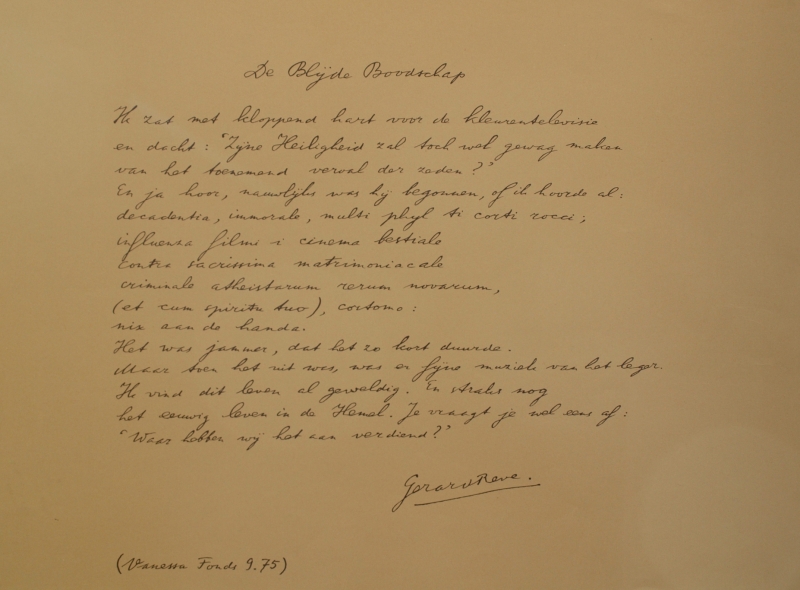 De Blijde Boodschap
Ik zat met kloppend hart voor de kleurentelevisie
en dacht: 'Zijne Heiligheid zal toch wel gewag maken
van het toenemend verval der zeden?'
En ja hoor, nauwlijks was hij begonnen, of ik hoorde al:
decadentia, immorale, multi phyl ti corti rocci;
influenza filmi i cinema bestiale
contra sacrissima matrimoniacale
criminale atheistarum rerum novarum,
(et cum spiritu tuo), cortomo:
nix aan de handa.
Het was jammer, dat het zo kort duurde.
Maar toen het uit was, was er fijne muziek van het leger.
Ik vind dit leven al geweldig. En straks nog
het eeuwig leven in de Hemel. Je vraagt je wel eens af:
'Waar hebben wij het aan verdiend?'
Gerard Reve.
(Vanessa Fonds 9.75)